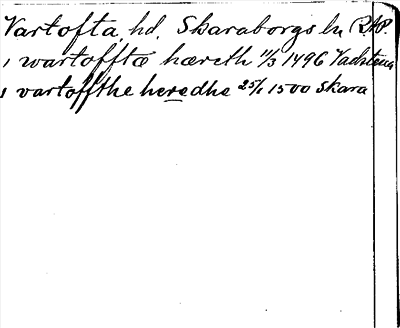 Vartofta, hd. Skaraborgs län RAP.
i wartofftæ hæreth 11/3 1496 Vadstena
i vartoffthe heredhe 25/1 1500 Skara